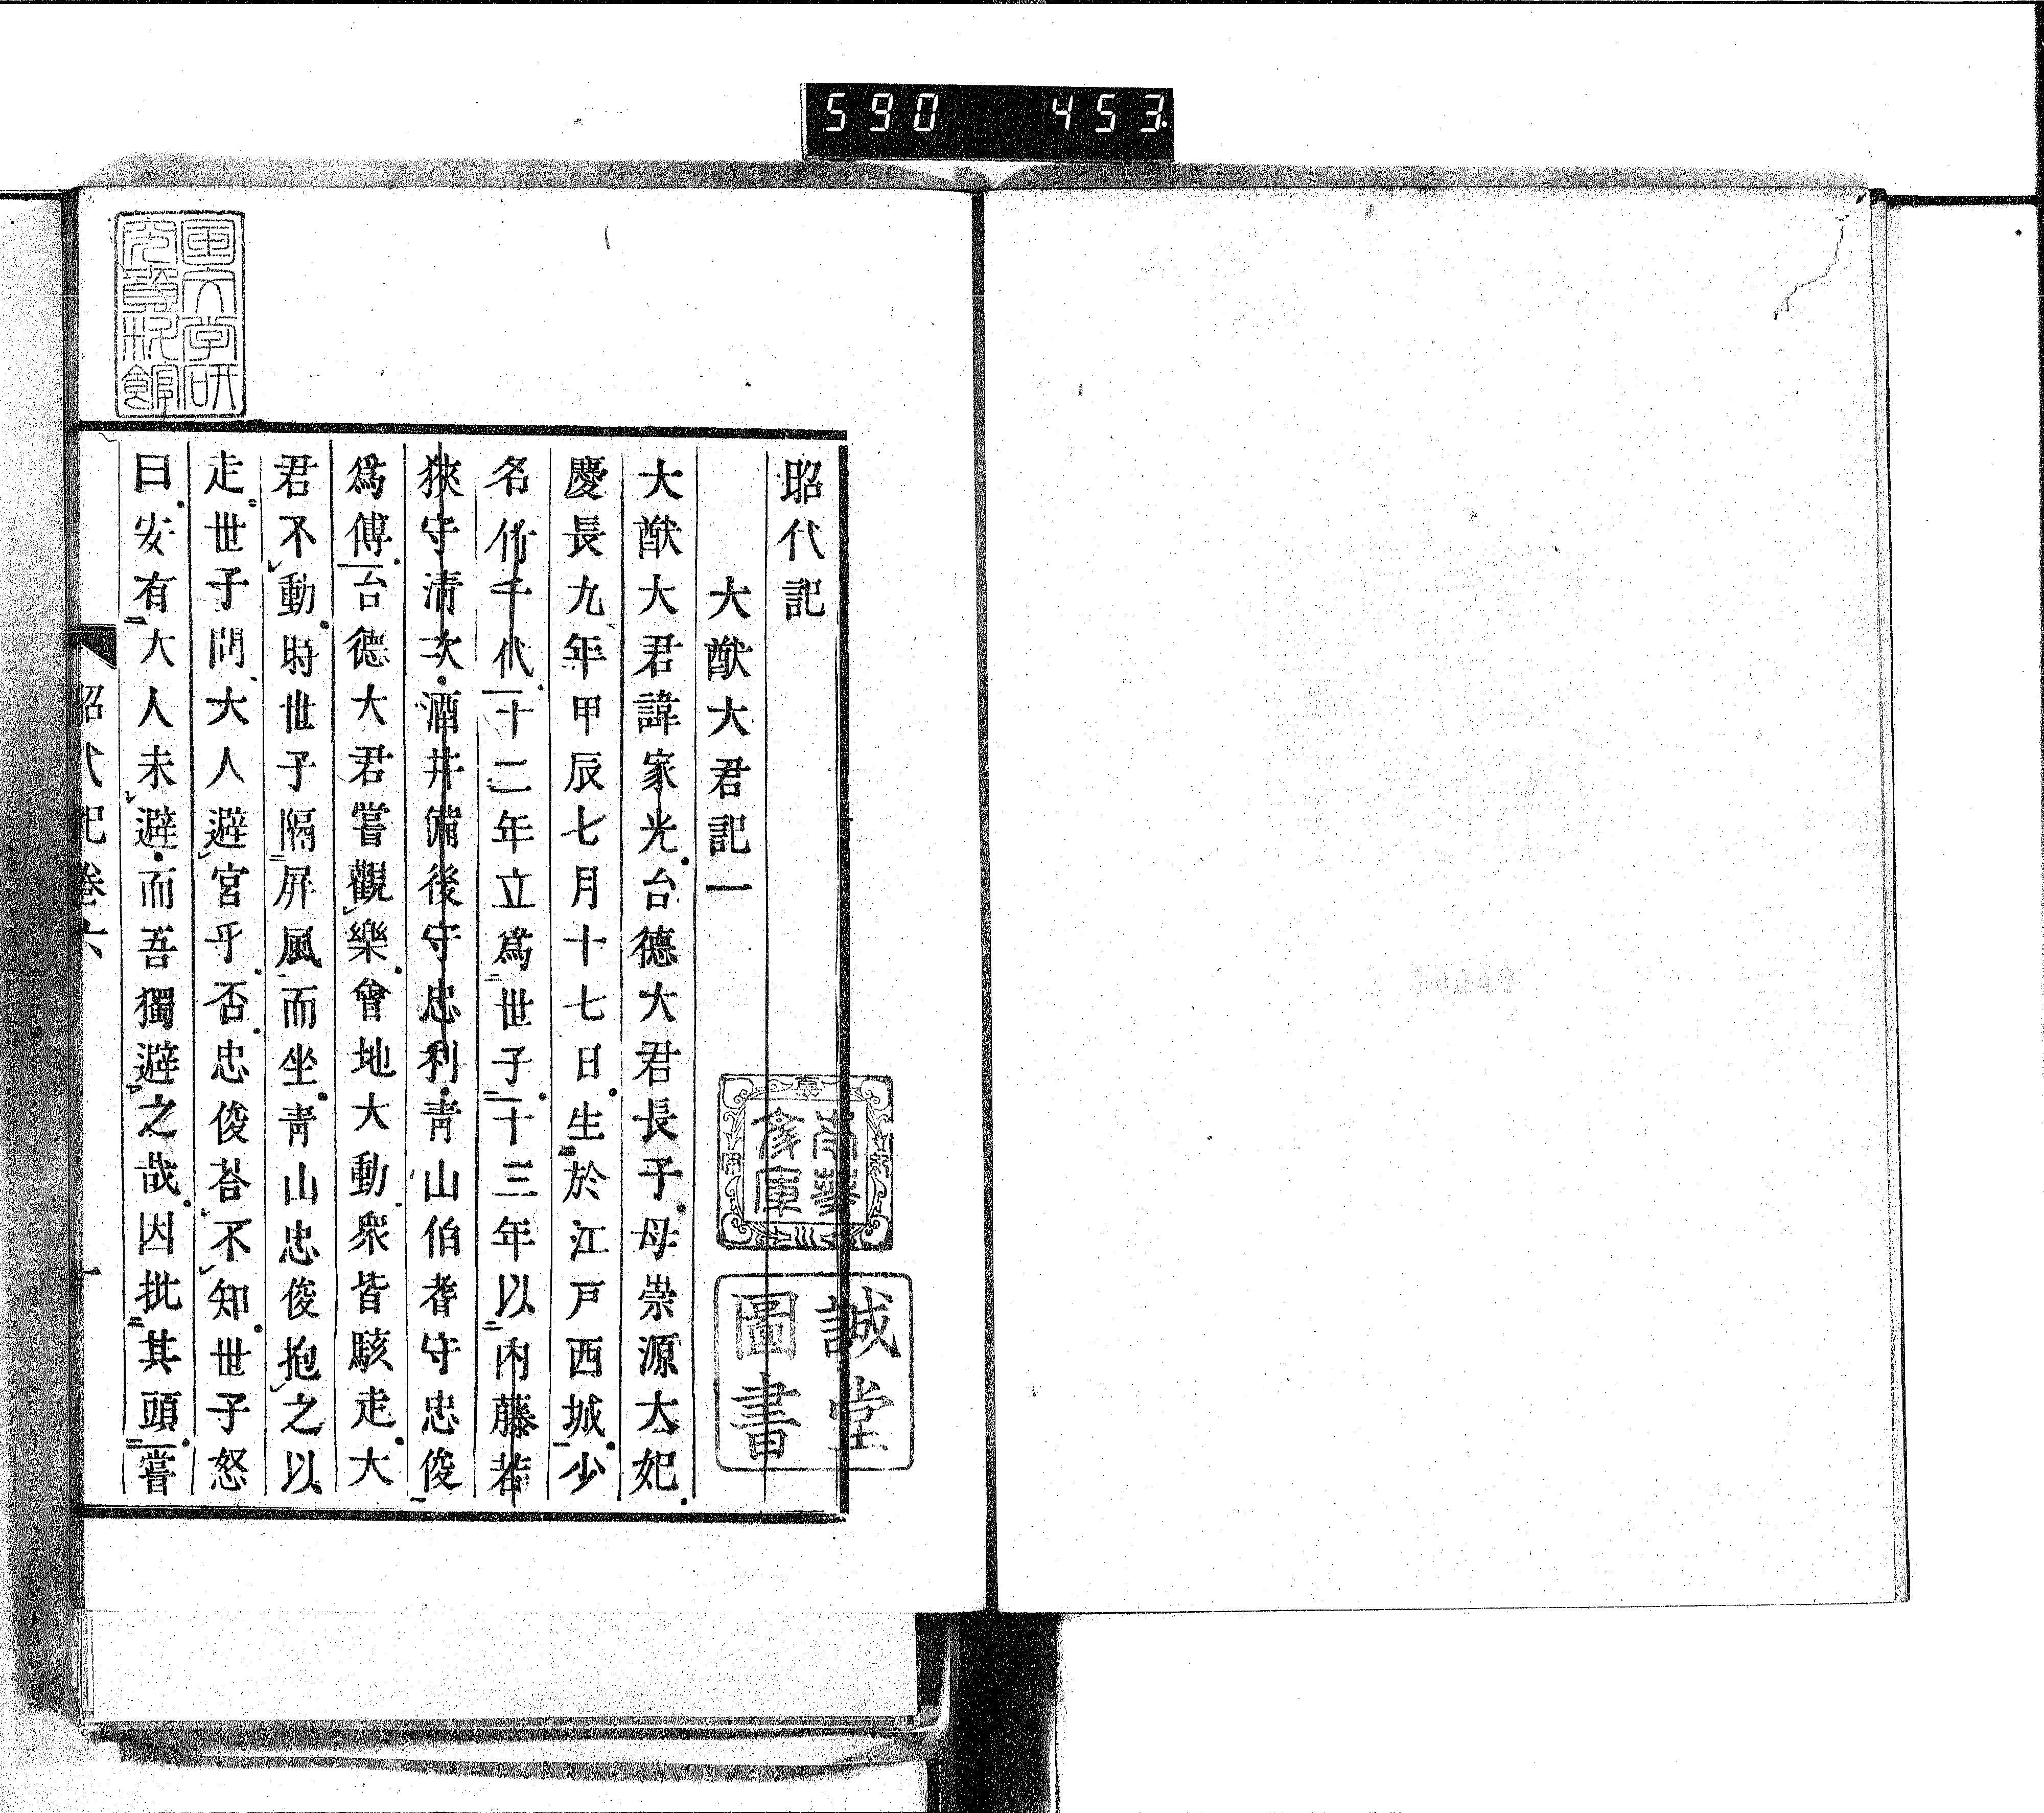 590 453
昭代記
大猷大君記一
大猷大君諱家光台德大君長子母崇源大妃
慶長九年甲辰七月十七日生於江戸西城少
名竹千代十二年立爲世子十三年以内藤若
狹守清次酒井備後守忠利青山伯耆守忠俊
爲傅台德大君嘗觀樂會地大動衆皆駭走大
君不動時世子隔屏風而坐青山忠俊抱之以
走世子問大人避宮乎否忠俊荅不知世子怒
曰安有大人未避而吾獨避之哉因批其頭嘗
昭代記卷六
誠堂
圖書
国文学研
究資料館